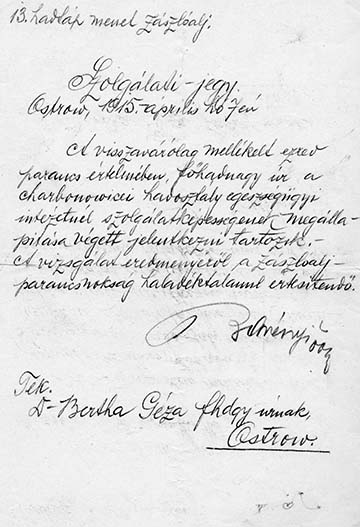 13. hadtáp menet zászlóalj.
Szolgálati-jegy.
Ostrow, 1915. április hó 7én
A visszavárólag mellékelt ezred
parancs értelmében, főhadnagy úr a
charbonowicei hadosztály egészségügyi
intézetnél szolgálatképességének megálla-
pítása végett jelentkezni tartozik.-
A vizsgálat eredményéről a zászlóalj-
parancsnokság haladéktalanul értesítendő.
Tek.
Dr Bertha Géza fhdgy úrnak,
Ostrow.